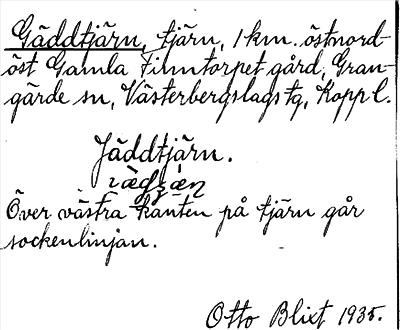 Gäddtjärn, tjärn, 1 km. östnord-
öst Gamla Finntorpet gård, Gran-
gärde sn, Västerbergslags tg, Kopp l.
Jäddtjärn.
Över västra kanten på tjärn går
sockenlinjan.
Otto Blixt 1935.